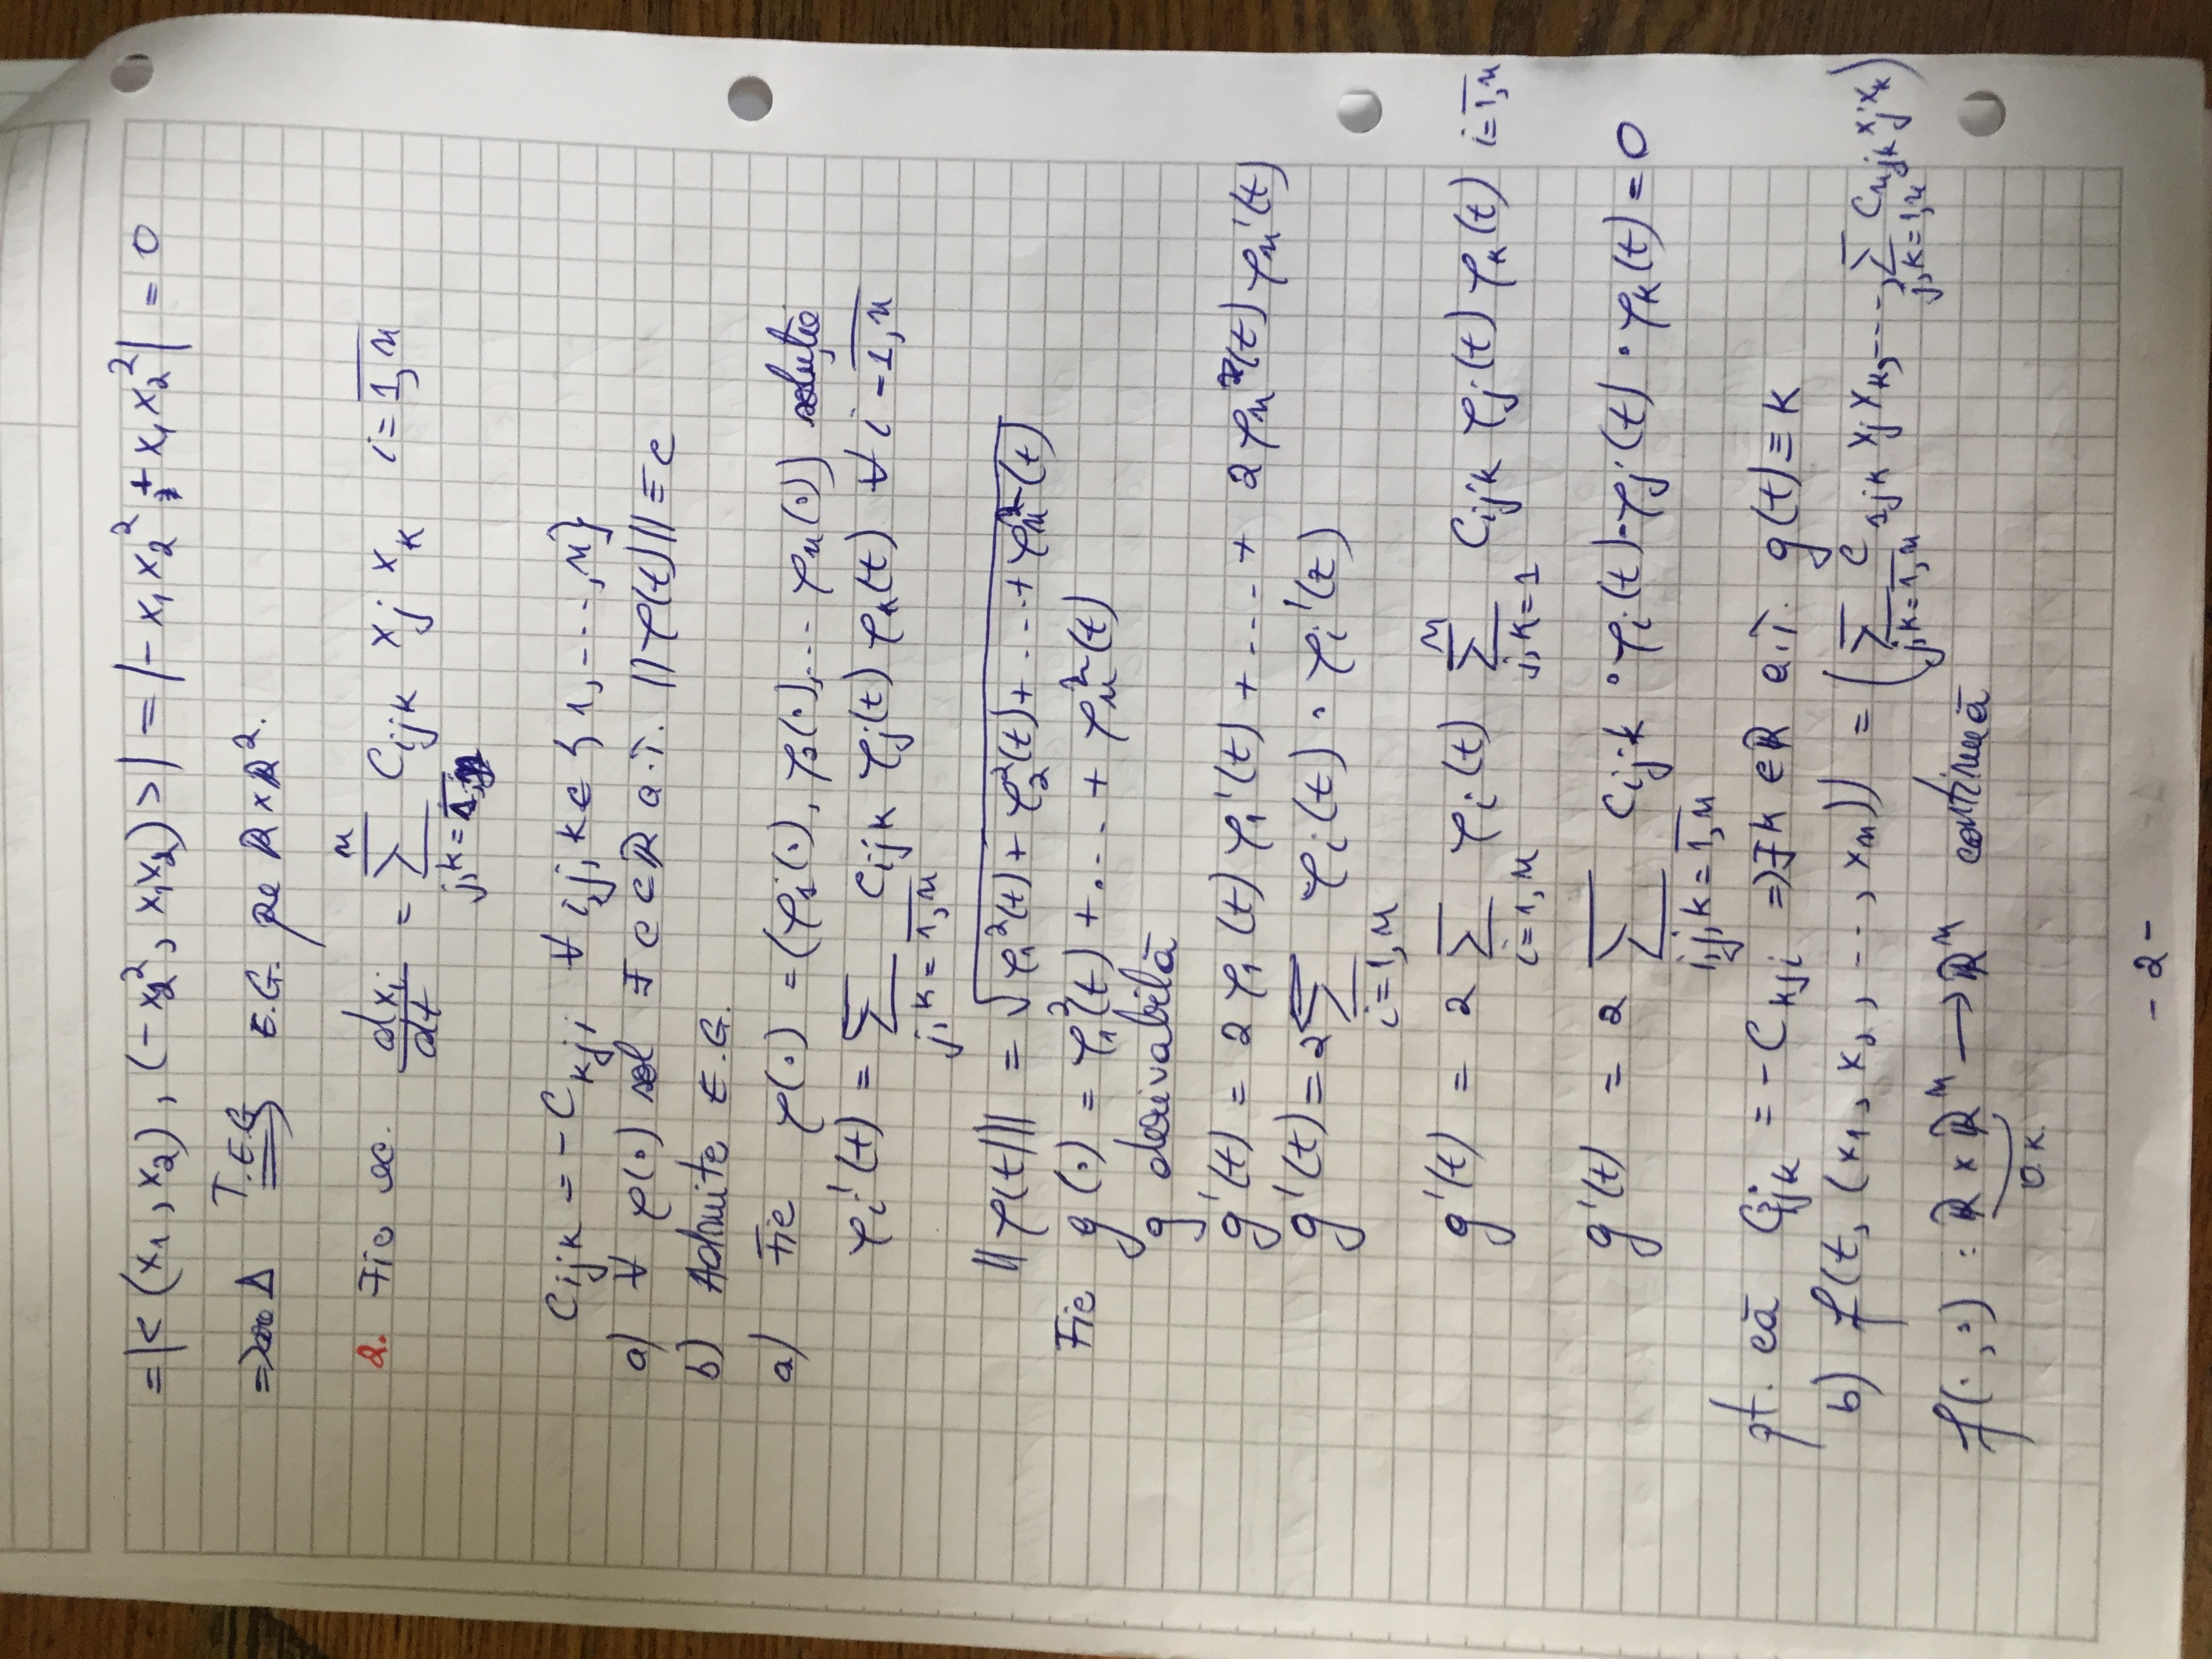 = |< (x₁, x₂), (-x₂², x₁x₂) >| = |- x₁x₂² + x₁x₂²| = 0
=> Δ T.E.G => E.G. pe ℝ × ℝ².
2. Fie ec. dxᵢ/dt = Σ_{j,k = 1,n}^{n} Cijk xj xk i = 1,n
Cijk = - Ckji ∀ i,j,k ∈ {1, ---, n}
a) ∀ φ(·) sol ∃ c ∈ ℝ a.î. ||φ(t)|| ≡ c
b) Admite E.G.
a) Fie φ(·) = (φ₁(·), φ₂(·), ... φn(·)) soluție
φi'(t) = Σ_{j,k = 1,n} Cijk φj(t) φk(t) ∀ i = 1,n
||φ(t)|| = √(φ₁²(t) + φ₂²(t) + ... + φn²(t))
Fie g(·) = φ₁²(t) + ... + φn²(t)
g derivabilă
g'(t) = 2 φ₁(t) φ₁'(t) + ... + 2 φn(t) φn'(t)
g'(t) = 2 Σ_{i=1,n} φi(t) · φi'(t)
g'(t) = 2 Σ_{i=1,n} φi(t) Σ_{j,k=1}^{n} Cijk φj(t) φk(t) i = 1,n
g'(t) = 2 Σ_{i,j,k = 1,n} Cijk · φi(t) · φj(t) · φk(t) = 0
pt. că Cijk = - Ckji => ∃ k ∈ ℝ a.î. g(t) ≡ k
b) f(t, (x₁, x₂, ---, xn)) = (Σ_{j,k = 1,n} C1jk xj xk, ---, Σ_{j,k = 1,n} Cnjk xj xk)
f(·,·) : ℝ × ℝⁿ → ℝⁿ continuă
O.K.
- 2 -